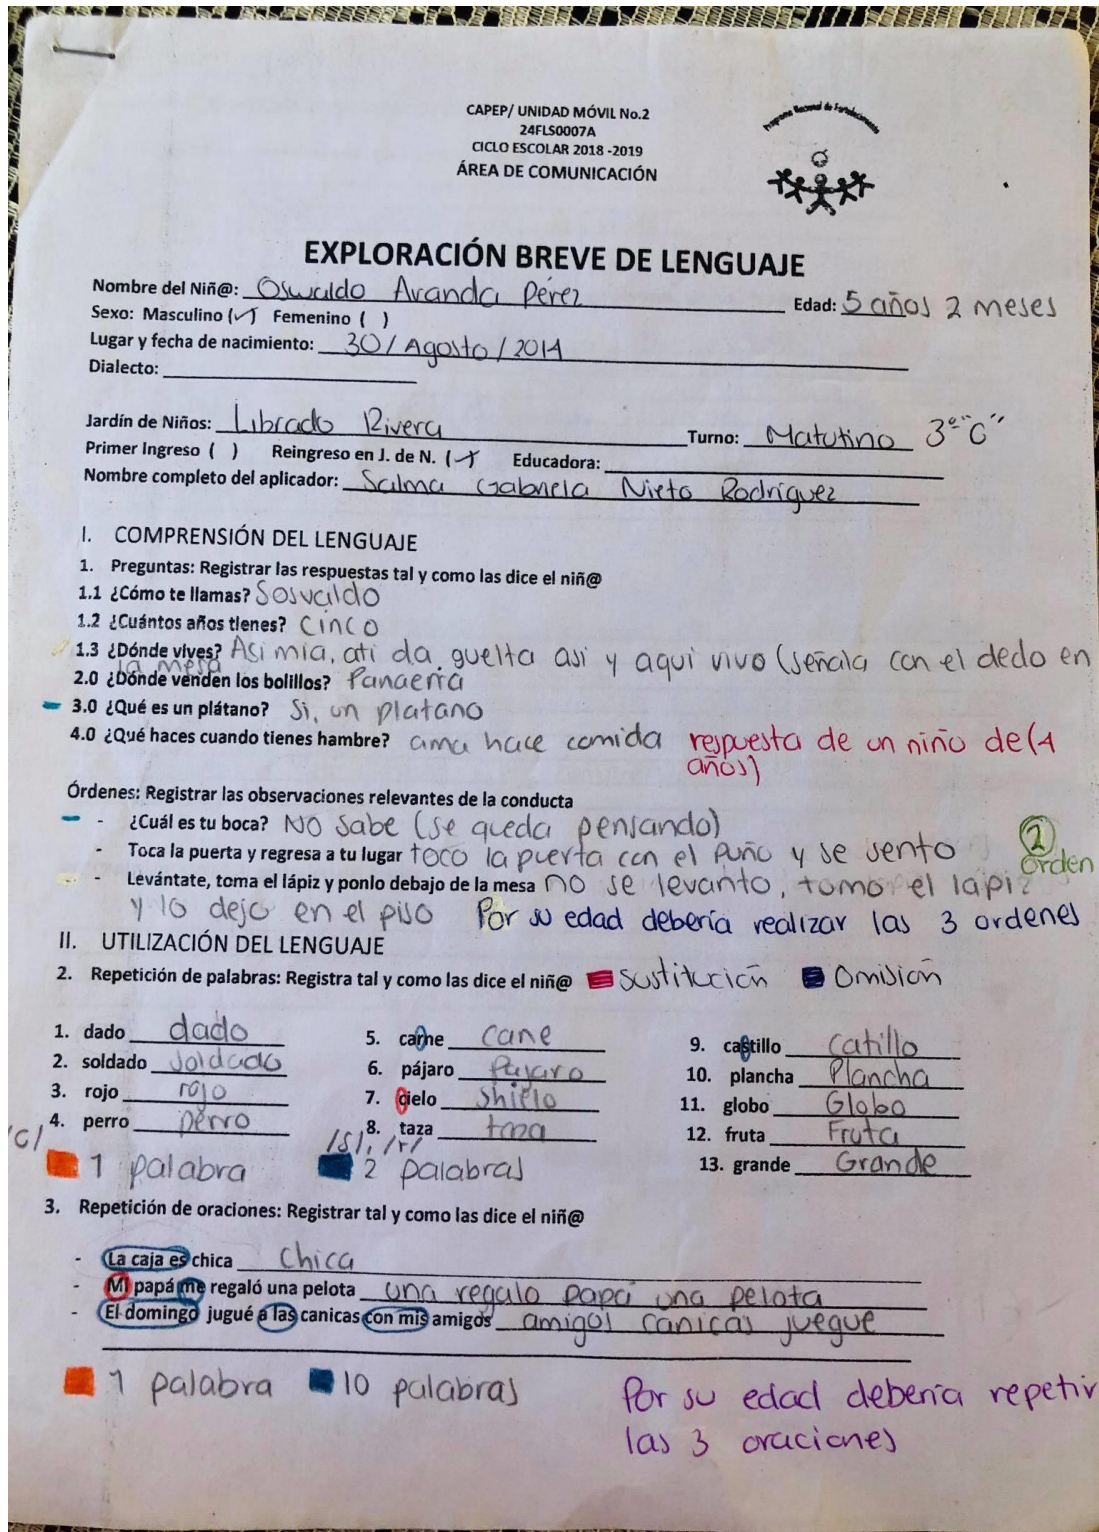 CAPEP/ UNIDAD MÓVIL No.2
24FLS0007A
CICLO ESCOLAR 2018 -2019
ÁREA DE COMUNICACIÓN
Programa Nacional de Fortalecimiento
EXPLORACIÓN BREVE DE LENGUAJE
Nombre del Niñ@: Oswaldo Aranda Pérez Edad: 5 años 2 meses
Sexo: Masculino (✓) Femenino ( )
Lugar y fecha de nacimiento: 30/Agosto/2014
Dialecto:
Jardín de Niños: Librado Rivera Turno: Matutino 3º "C"
Primer Ingreso ( ) Reingreso en J. de N. (✓) Educadora:
Nombre completo del aplicador: Salma Gabriela Nieto Rodríguez
I. COMPRENSIÓN DEL LENGUAJE
1. Preguntas: Registrar las respuestas tal y como las dice el niñ@
1.1 ¿Cómo te llamas? Sosvaldo
1.2 ¿Cuántos años tienes? Cinco
1.3 ¿Dónde vives? Asi mia, ati da guelta asi y aqui vivo (señala con el dedo en
la mesa
2.0 ¿Dónde venden los bolillos? Panaerria
3.0 ¿Qué es un plátano? Si, un platano
4.0 ¿Qué haces cuando tienes hambre? ama hace comida respuesta de un niño de (4
años)
Órdenes: Registrar las observaciones relevantes de la conducta
- ¿Cuál es tu boca? NO sabe (se queda pensando)
- Toca la puerta y regresa a tu lugar toco la puerta con el puño y se sento 2
orden
- Levántate, toma el lápiz y ponlo debajo de la mesa no se levanto, tomo el lapiz
y lo dejo en el piso Por su edad debería realizar las 3 ordenes
II. UTILIZACIÓN DEL LENGUAJE
2. Repetición de palabras: Registra tal y como las dice el niñ@ Sustitución Omisión
1. dado dado 5. carne cane 9. castillo catillo
2. soldado soldado 6. pájaro Pajaro 10. plancha Plancha
3. rojo rojo 7. cielo shielo 11. globo Globo
4. perro perro 8. taza taza 12. fruta Fruta
/c/ 1 palabra /s/, /r/ 2 palabras 13. grande Grande
3. Repetición de oraciones: Registrar tal y como las dice el niñ@
- La caja es chica Chica
- Mi papá me regaló una pelota una regalo papá una pelota
- El domingo jugué a las canicas con mis amigos amigos canicas juegue
1 palabra 10 palabras Por su edad debería repetir
las 3 oraciones